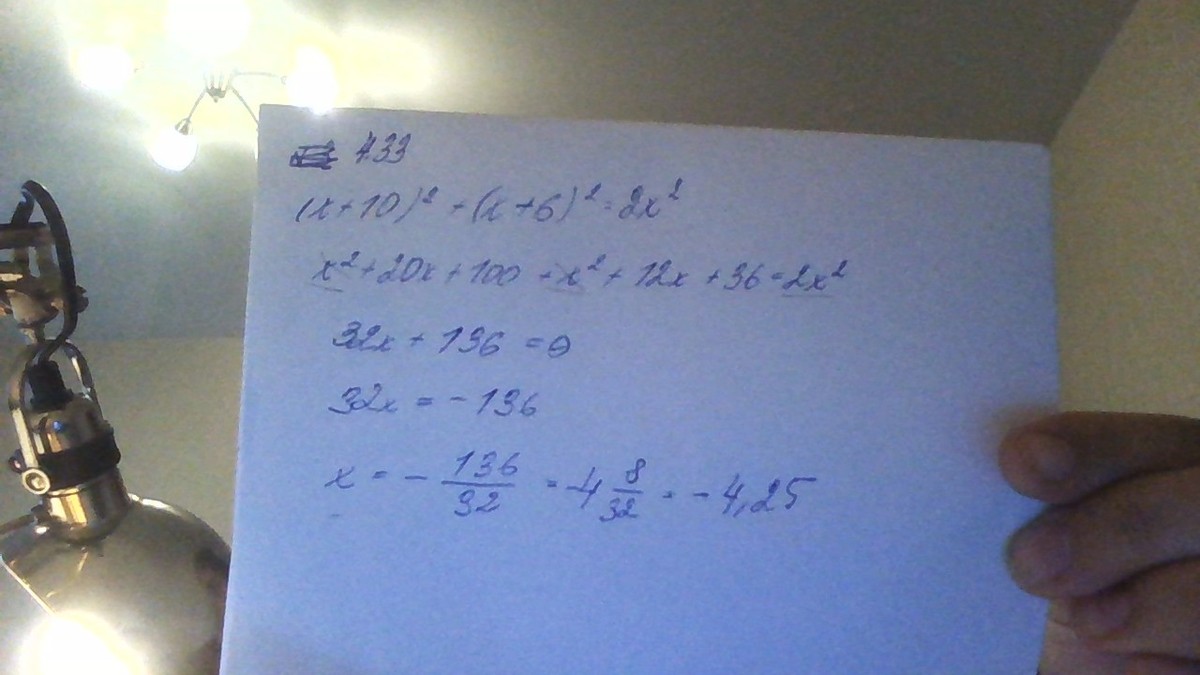 433
(x+10)² + (x+6)² = 2x²
x² + 20x + 100 + x² + 12x + 36 = 2x²
32x + 136 = 0
32x = -136
x = - 136/32 = -4 8/32 = -4,25